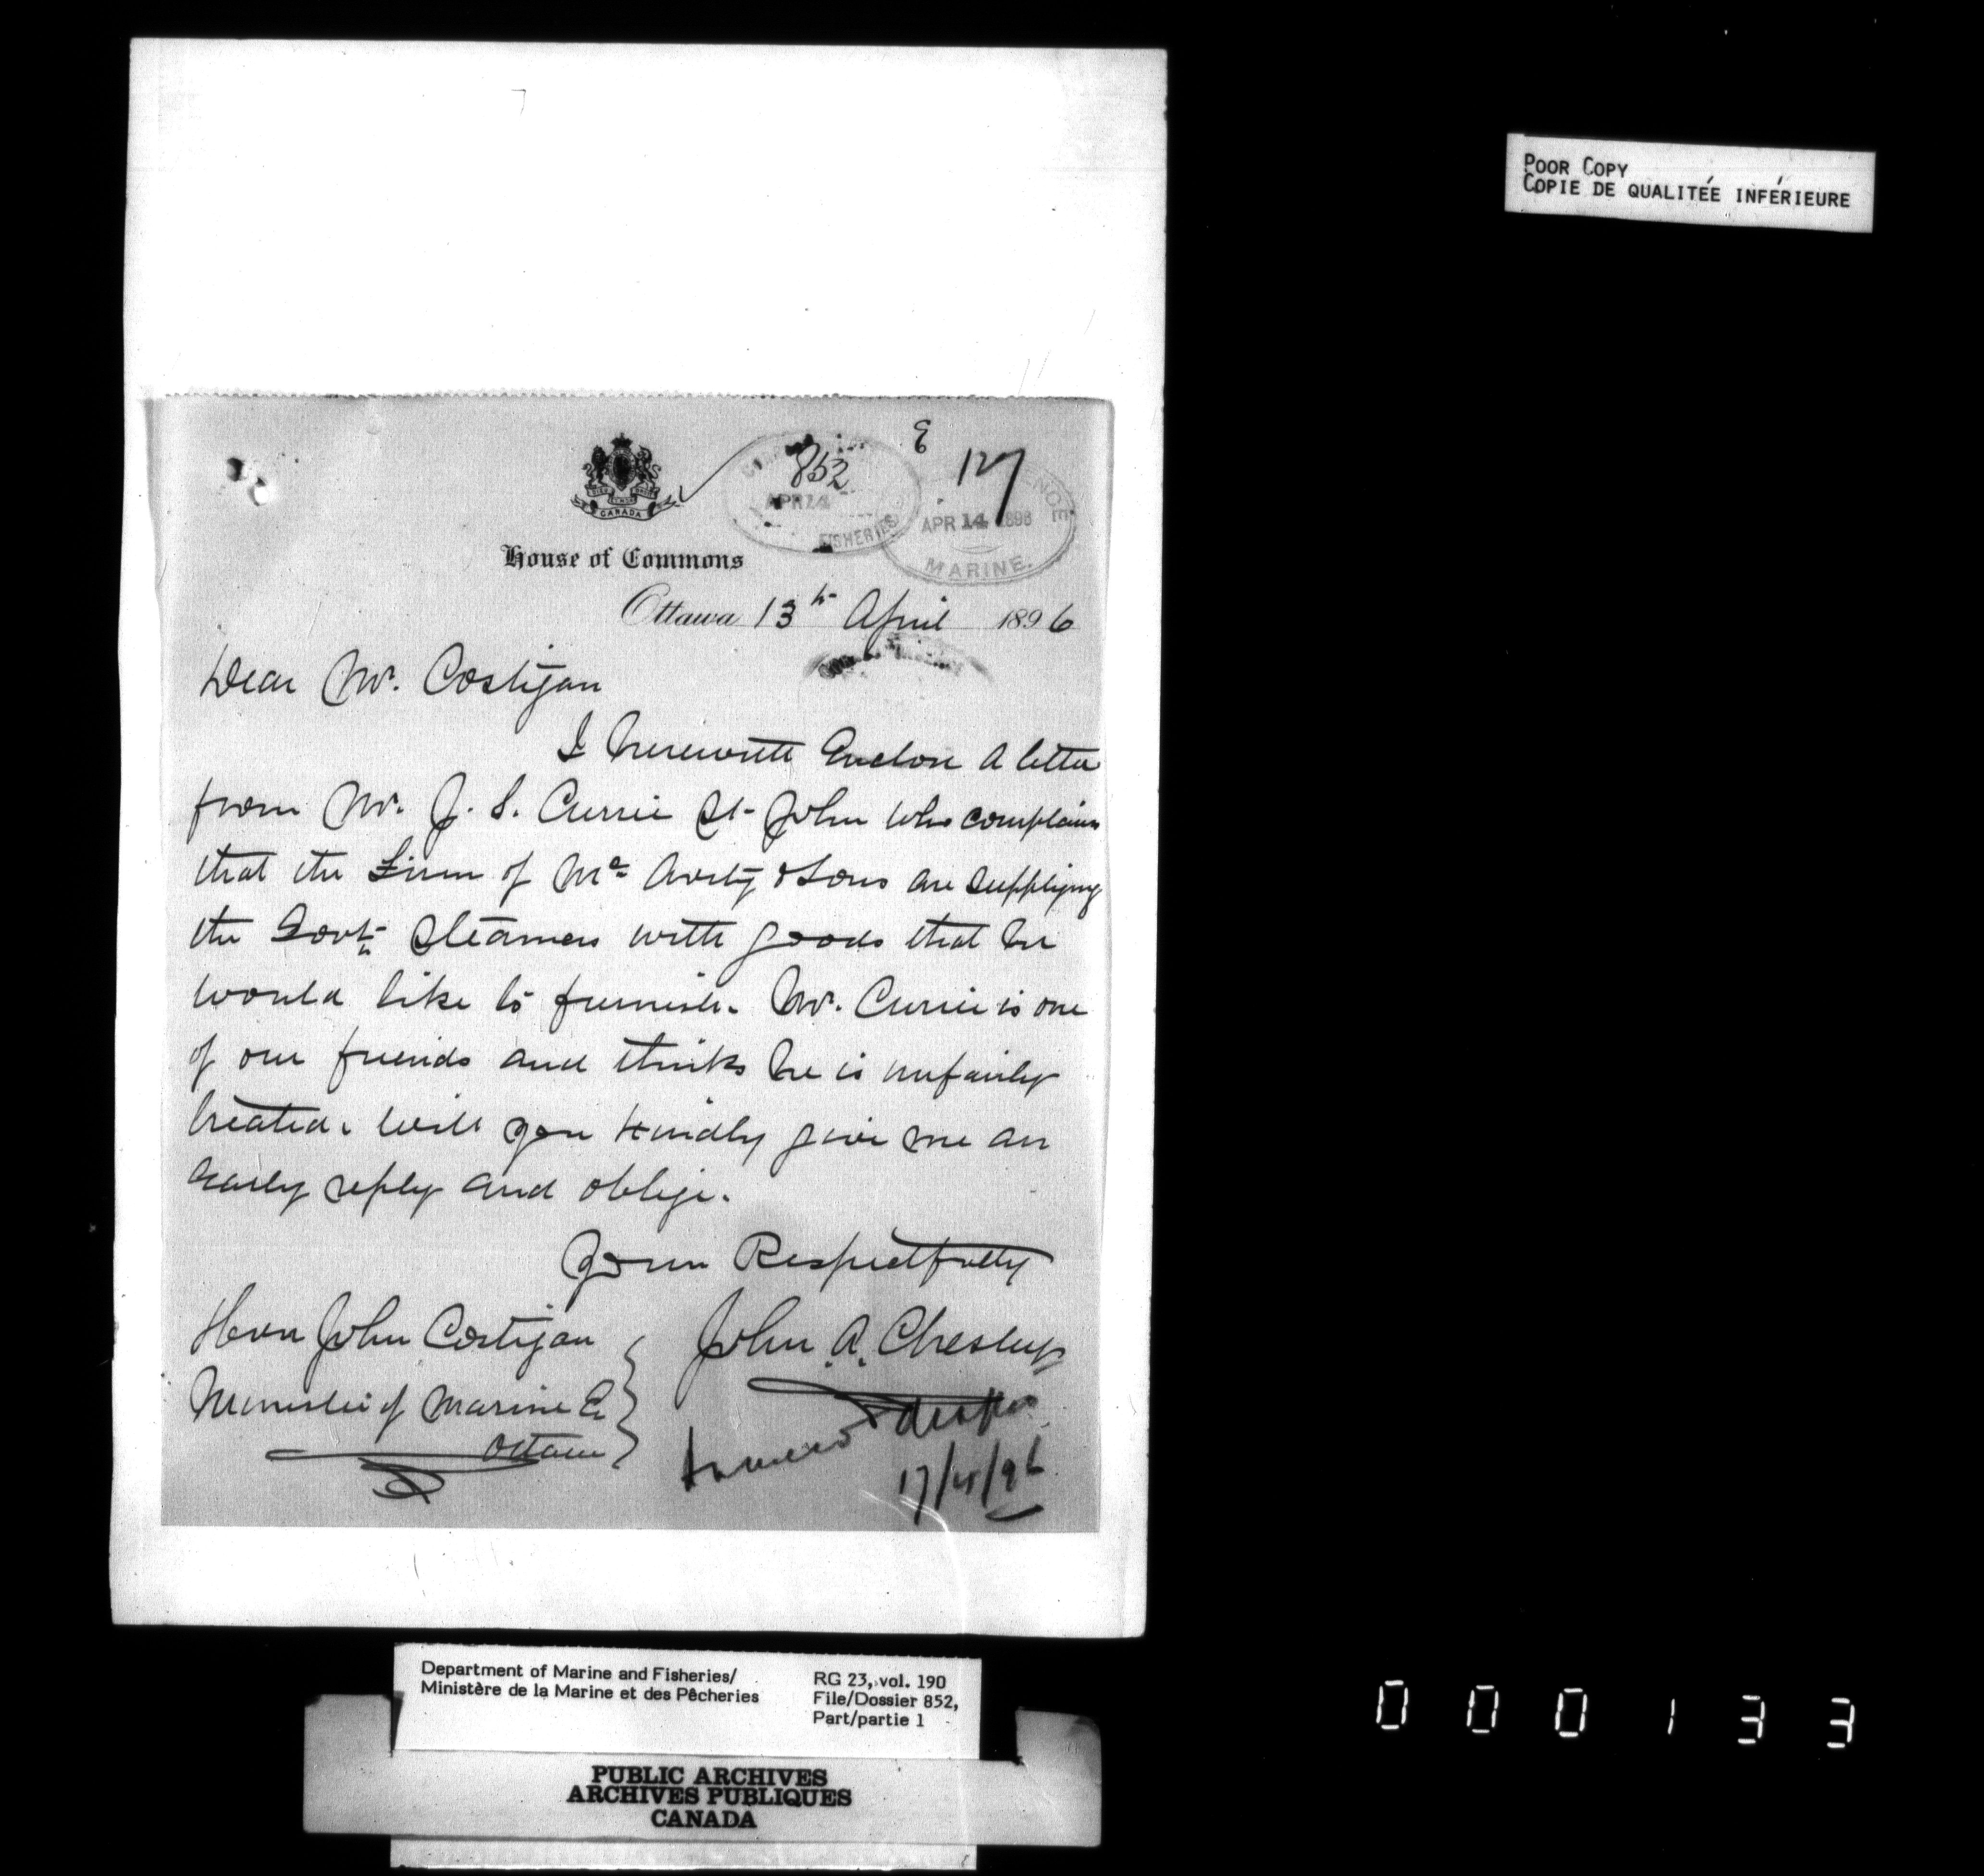 POOR COPY
COPIE DE QUALITÉE INFÉRIEURE
E
852
127
APR 14
FISHERIES
APR 14 1896
MARINE.
CANADA
House of Commons
Ottawa 13th April 1896
Dear Mr. Costigan
I herewith Enclose a letter
from Mr. J. S. Currie St. John who complains
that the Firm of Mc Avity & Sons are supplying
the Govt. Steamers with goods that he
would like to furnish. Mr. Currie is one
of our friends and thinks he is unfairly
treated. Will you kindly give me an
early reply and oblige.
Yours Respectfully
Honr John Costigan
John A. Chesley
Minister of Marine &
Ottawa
17/4/96
Department of Marine and Fisheries/
Ministère de la Marine et des Pêcheries
RG 23, vol. 190
File/Dossier 852,
Part/partie 1
PUBLIC ARCHIVES
ARCHIVES PUBLIQUES
CANADA
000133